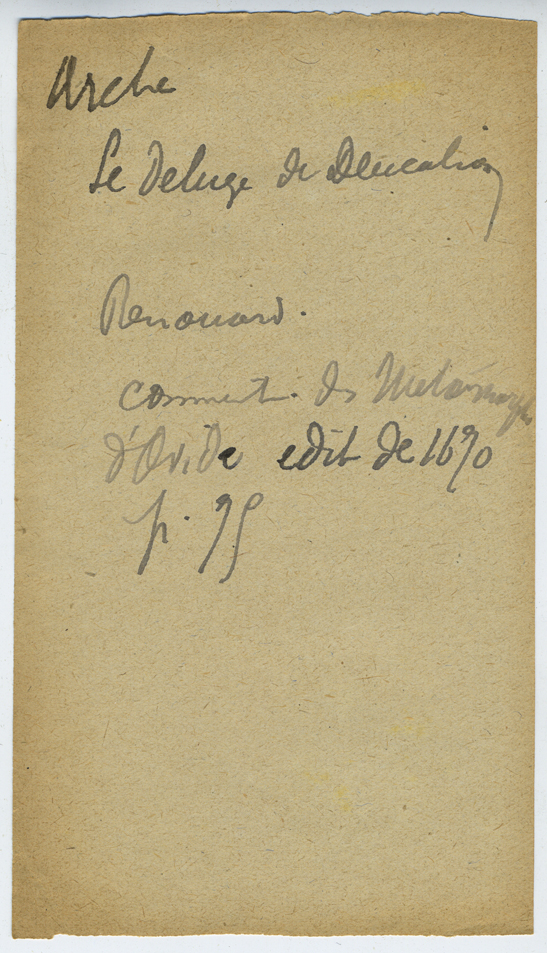 Arche
Le Deluge de Deucalion
Renouard.
comment. des Metamorph
d'Ovide edit de 1670
p.